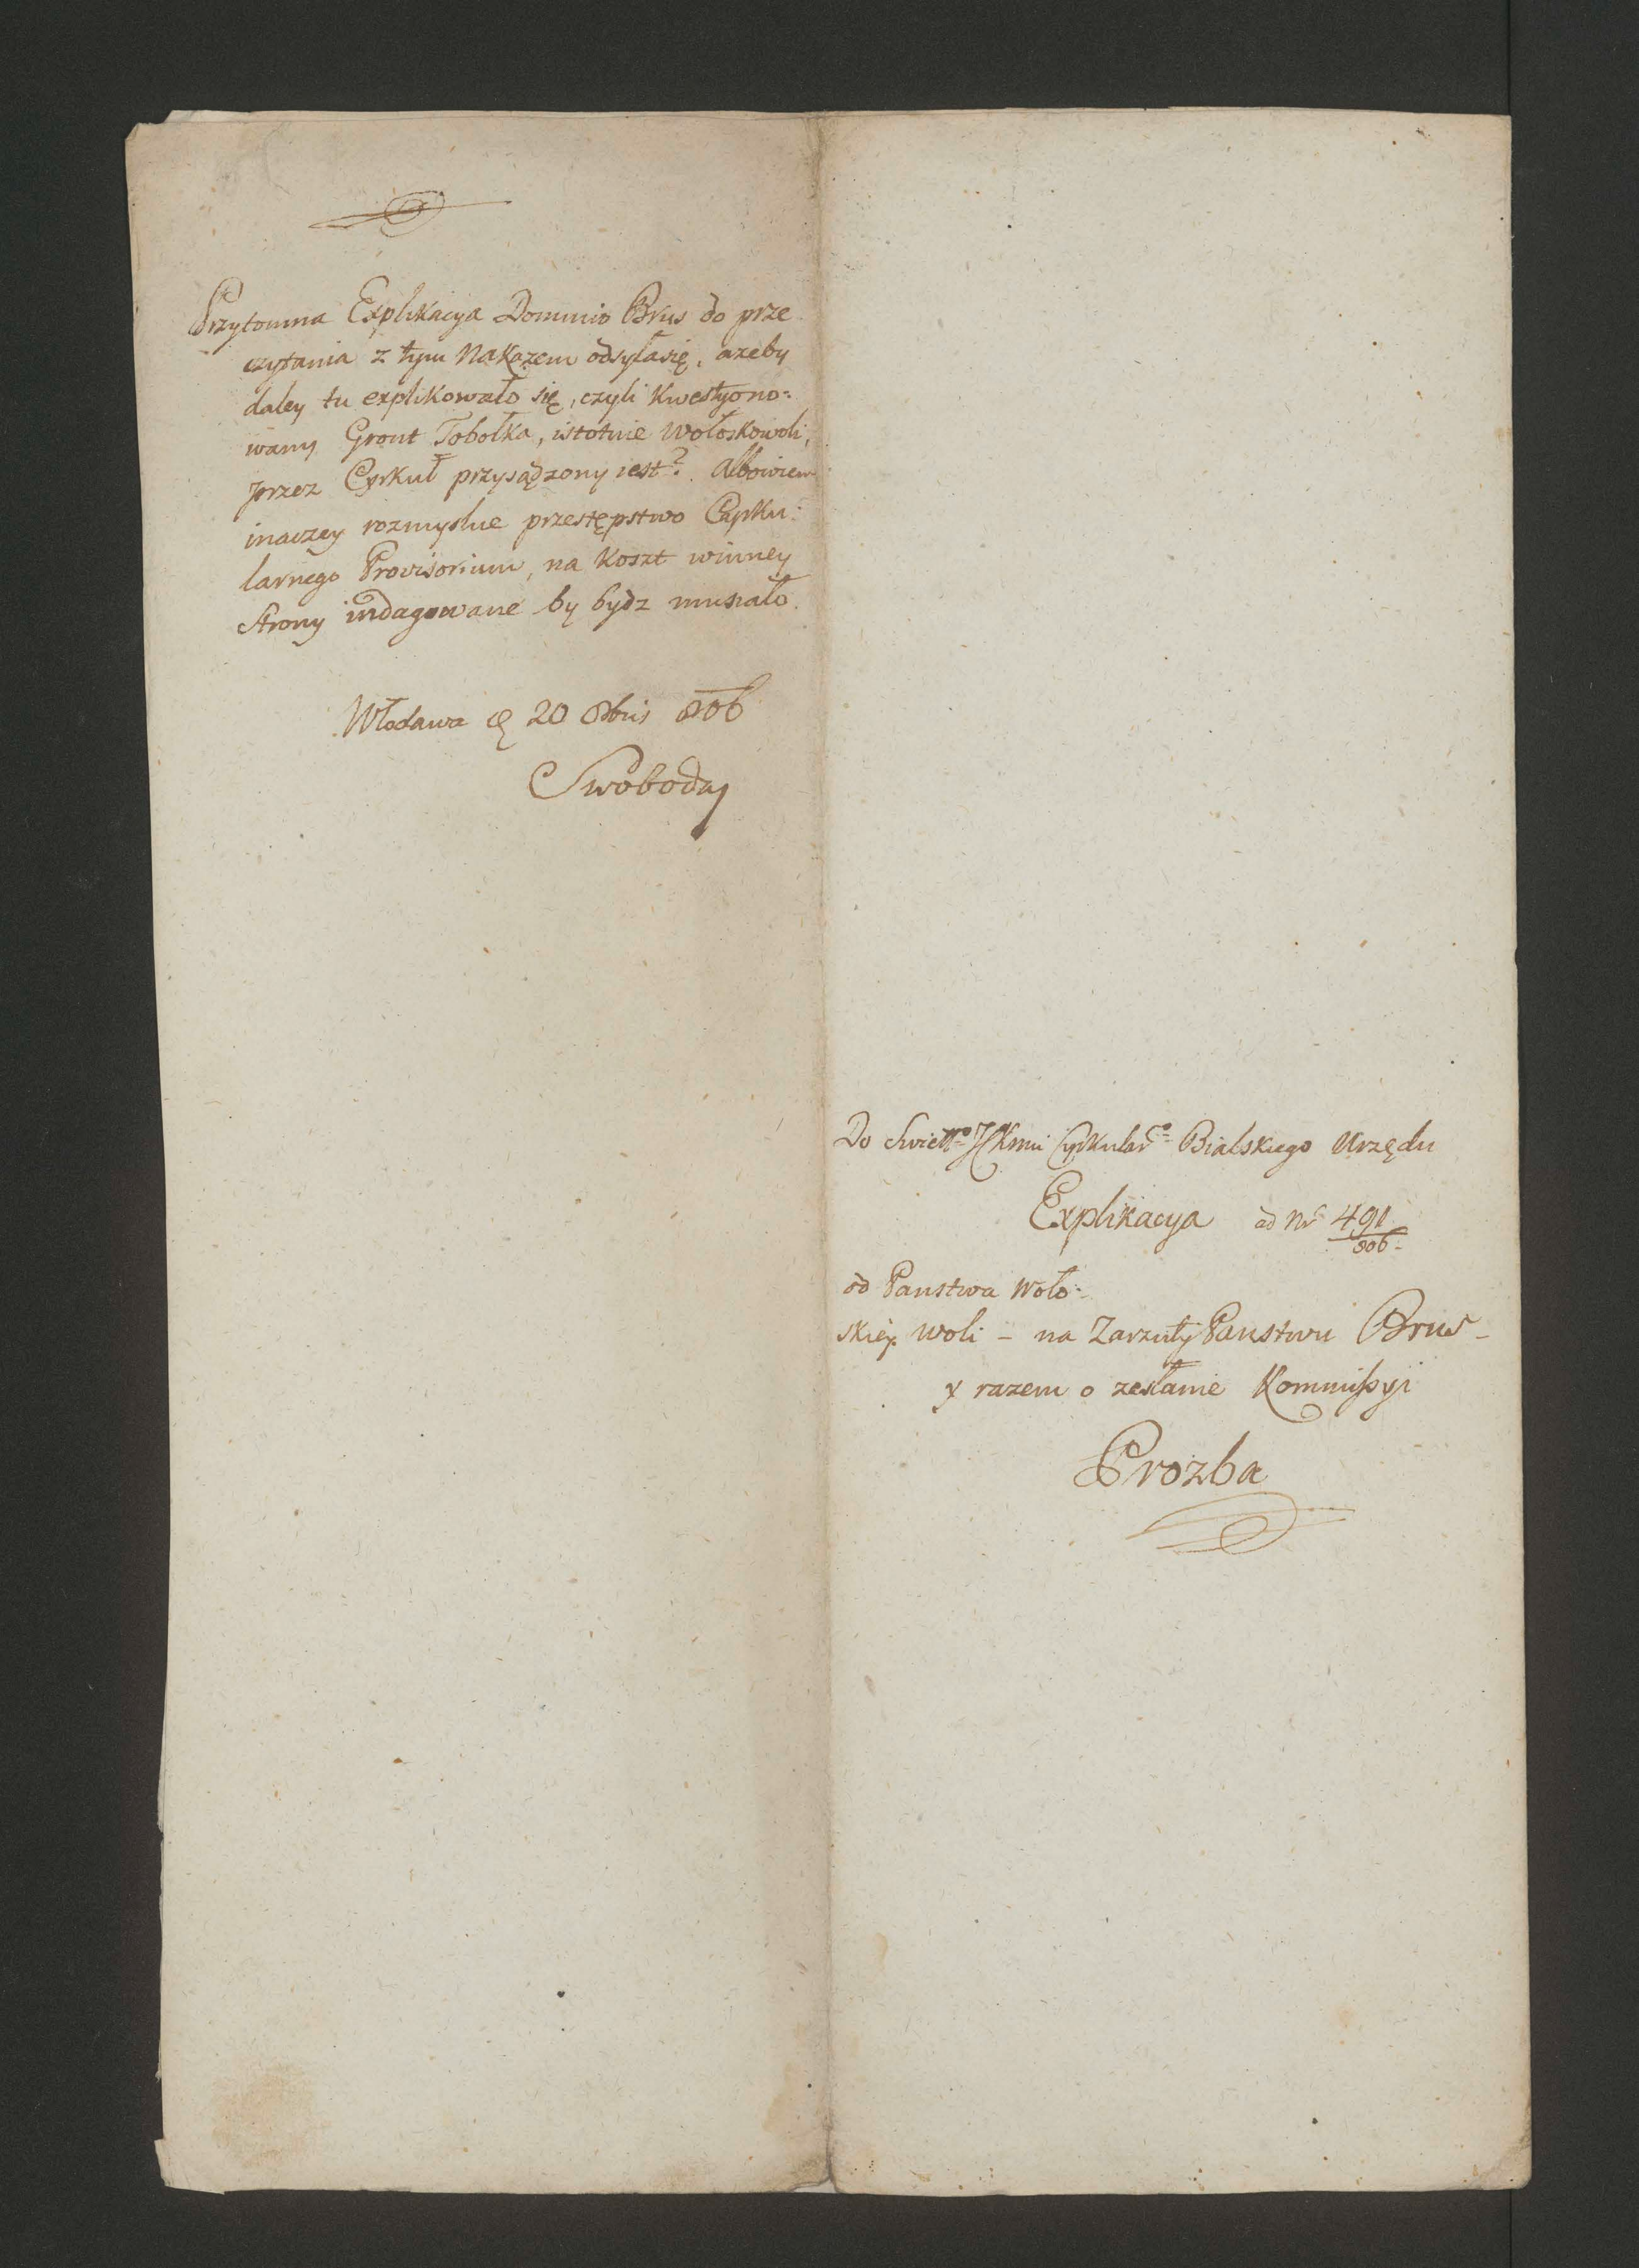 Przytomna Explikacya Dominio Brus do prze
czytania z tym Nakazem odsyła się, azeby
daley tu explikowało się, czyli Kwestyono=
wany Gront Tobołka, istotnie Wołoskowoli,
przez Cyrkuł przysądzony iest?. Albowiem
inaczey rozmyslne przestępstwo Cyrku:
larnego Provisorium, na Koszt winney
Strony indagowane by bydz musiało.
Włodawa 20 8bris 806
Swoboda
Do Swiettgo Cyrkulargo Bialskiego Urzędu
Explikacya ad Nr 491
806
od Panstwa Woło=
skiey Woli – na Zarzuty Panstwu Brus –
y razem o zesłanie Kommissyi
Prozba